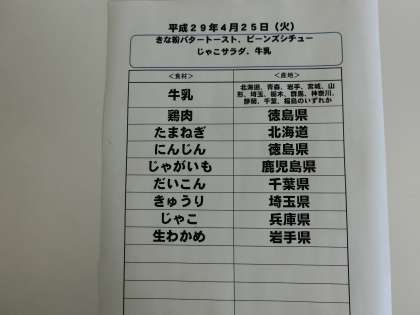 平成29年4月25日（火）
きな粉バタートースト、ビーンズシチュー
じゃこサラダ、牛乳
＜食材＞ ＜産地＞
牛乳 北海道、青森、岩手、宮城、山
形、埼玉、栃木、群馬、神奈川、
静岡、千葉、福島のいずれか
鶏肉 徳島県
たまねぎ 北海道
にんじん 徳島県
じゃがいも 鹿児島県
だいこん 千葉県
きゅうり 埼玉県
じゃこ 兵庫県
生わかめ 岩手県